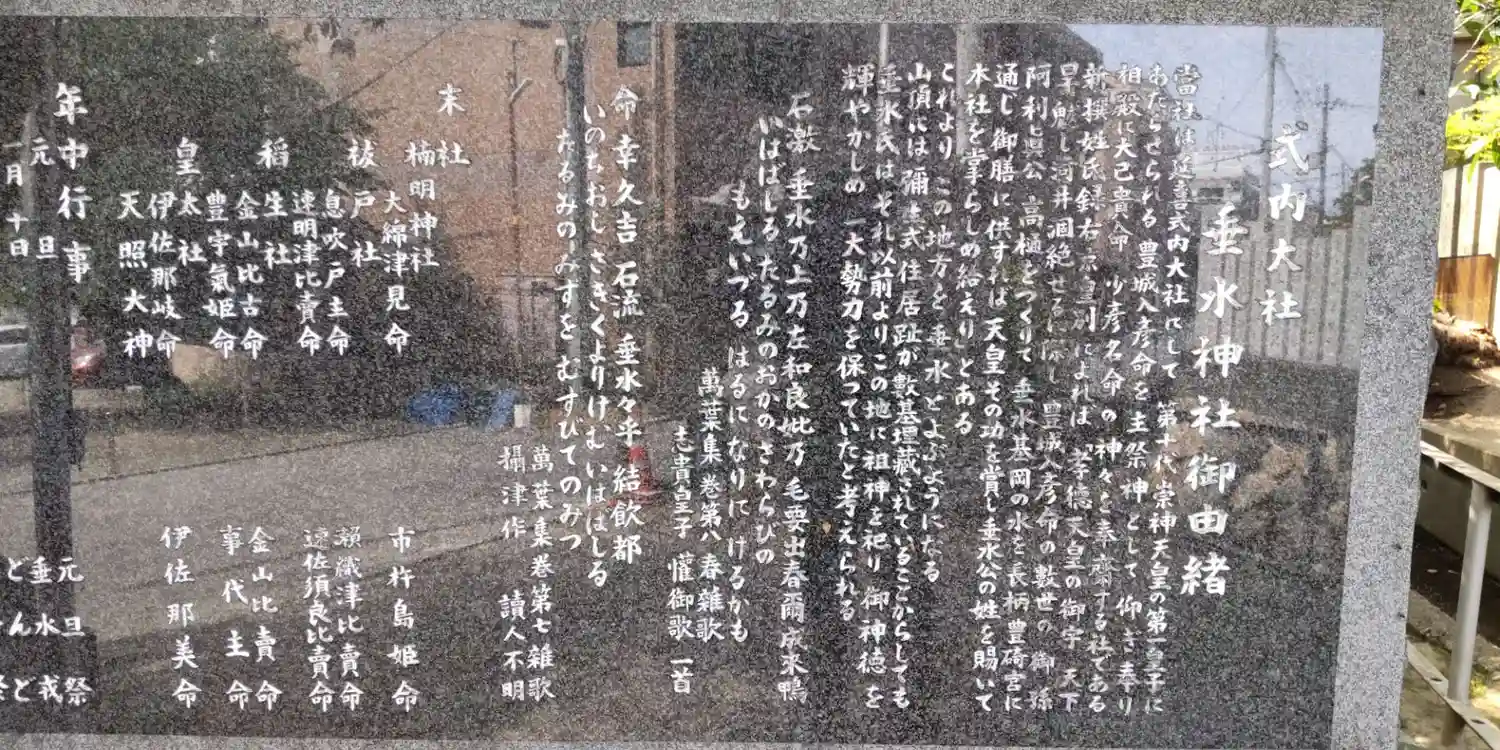 式内大社
垂水神社御由緒
当社は延喜式内大社にして 第十代崇神天皇の第一皇子に
あたらせられる 豊城入彦命を主祭神として仰ぎ奉り
相殿に大己貴命 少彦名命の神々を奉齋する社である
新撰姓氏録右京皇別によれば「孝徳天皇の御宇 天下
旱魃し河井涸絶せるに際し 豊城入彦命の数世の御孫
阿利真公 高樋をつくりて 垂水基岡の水を長柄豊碕宮に
通じ御膳に供すれば 天皇その功を賞し垂水公の姓を賜いて
本社を掌らしめ給えり」とある
これより この地方を垂水とよぶようになる
山頂には彌生式住居趾が數基埋蔵されているここからしても
垂水氏は それ以前よりこの地に祖神を祀り 御神徳を
輝やかしめ 一大勢力を保っていたと考えられる
石激 垂水乃上乃左和良妣乃 毛要出春爾成来鴨
いははしるたるみのおかのさわらびの
もえいづる はるになりにけるかも
萬葉集巻第八 春雜歌
志貴皇子 懽御歌 一首
命 幸久吉 石流 垂水々乎 結飲都
いのちおしさきくよりけむ いははしる
たるみのみずを むすびてのみつ
萬葉集巻第七雜歌
攝津作 讀人不明
末社
楠明神社
大綿津見命 市杵島姫命
祓戸社
息吹戸主命 瀬織津比賣命
速明津比賣命 速佐須良比賣命
稲生社
金山比古命 金山比賣命
豊宇氣姫命 事代主命
皇太社
伊佐那岐命 伊佐那美命
天照大神
年中行事
元旦 元旦祭
一月十日 垂水戎